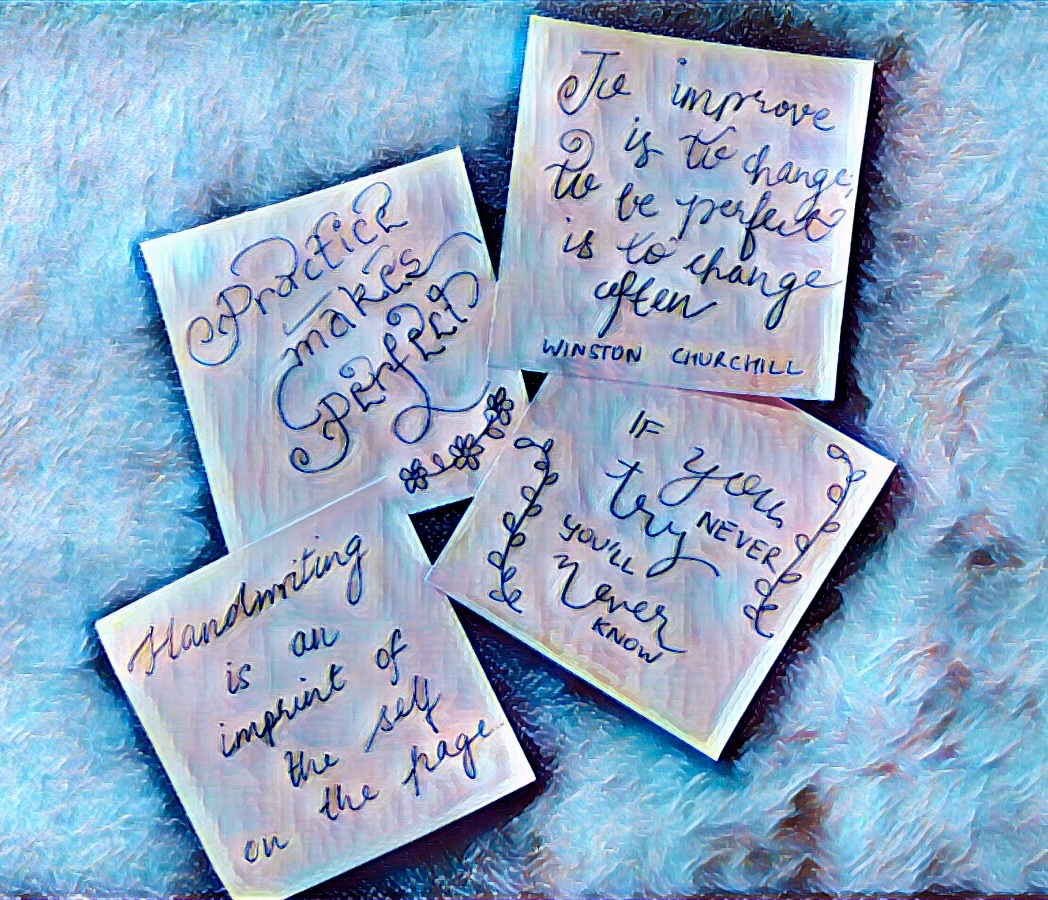 Practice
makes
perfect
To improve
is to change;
to be perfect
is to change
often
WINSTON CHURCHILL
Handwriting
is an
imprint of
the self
on the page
IF you
try NEVER
YOU'LL
Never
KNOW